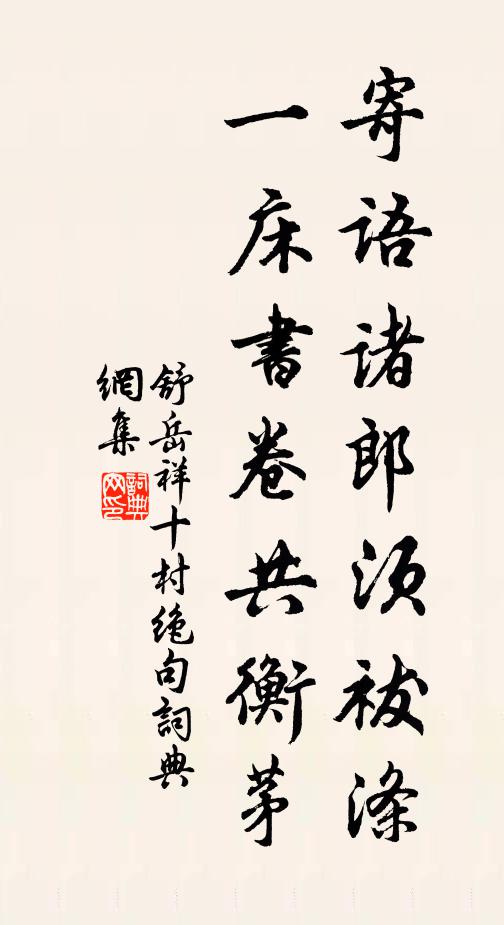 寄语诸郎须祓涤
一床書卷共衡茅
舒岳祥十村绝句詞典
網集
詞典網印